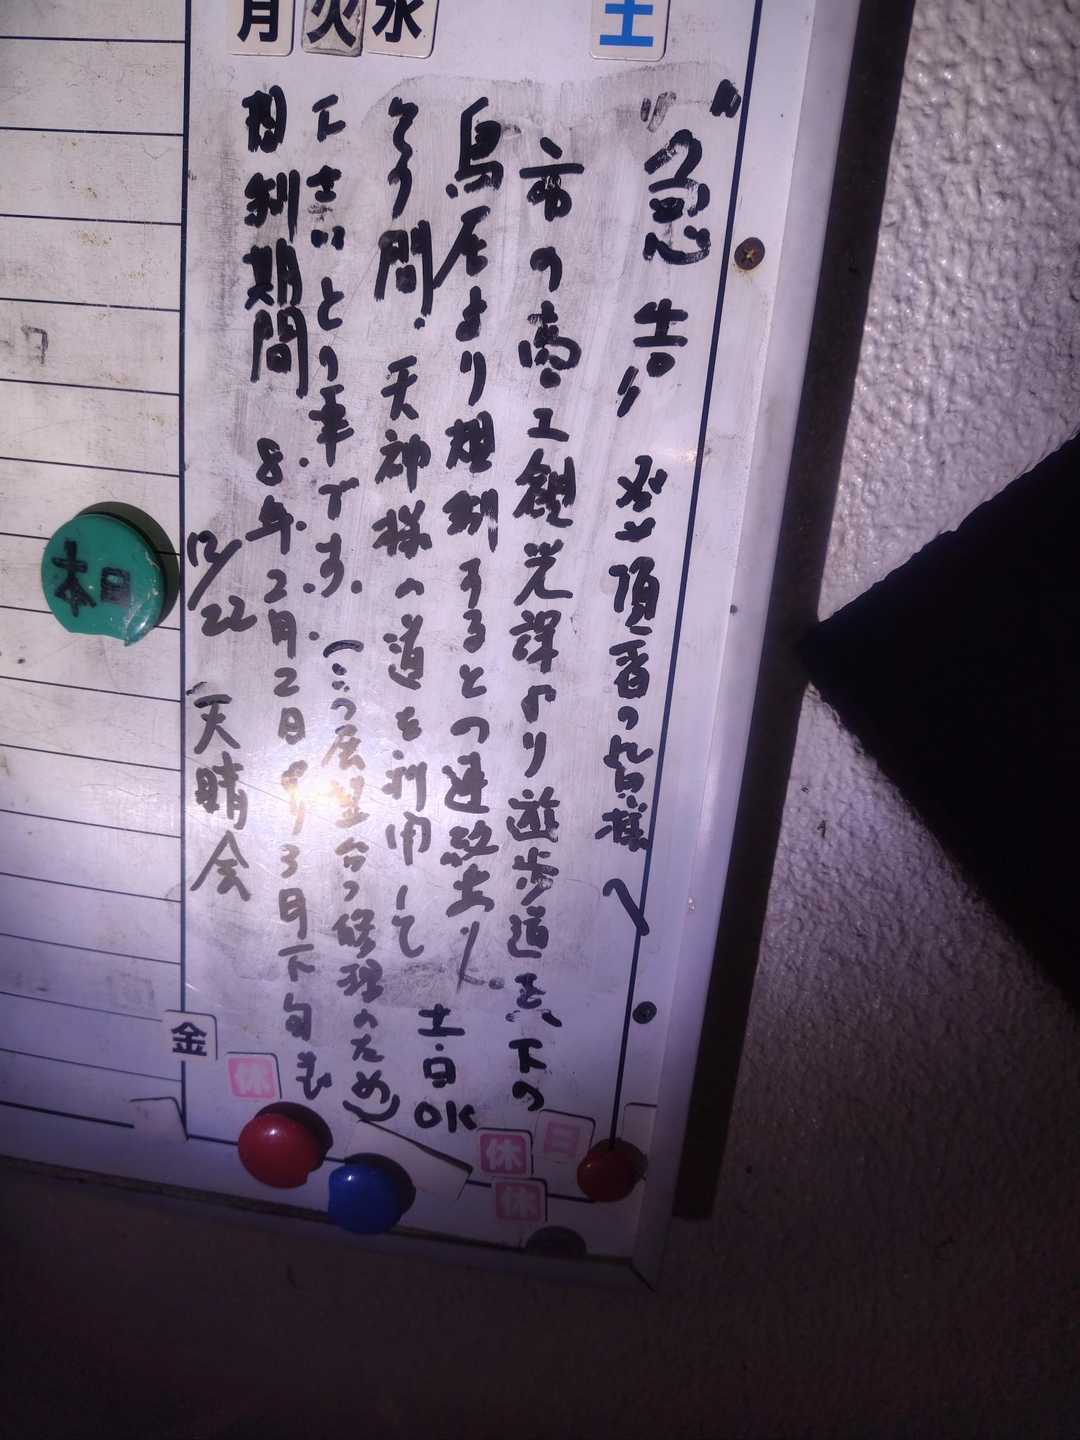 月 火 水 土
"急告" 登頂者の皆様へ
市の商工観光課より遊歩道真下の
鳥居より規制するとの連絡有り。
土・日OK
その間、天神様の道を利用して
下さいとの事です。(この展望台の修理のため)
規制期間 8年2月2日より3月下旬まで
12/22 天晴会
本日
金
休
休
日
休